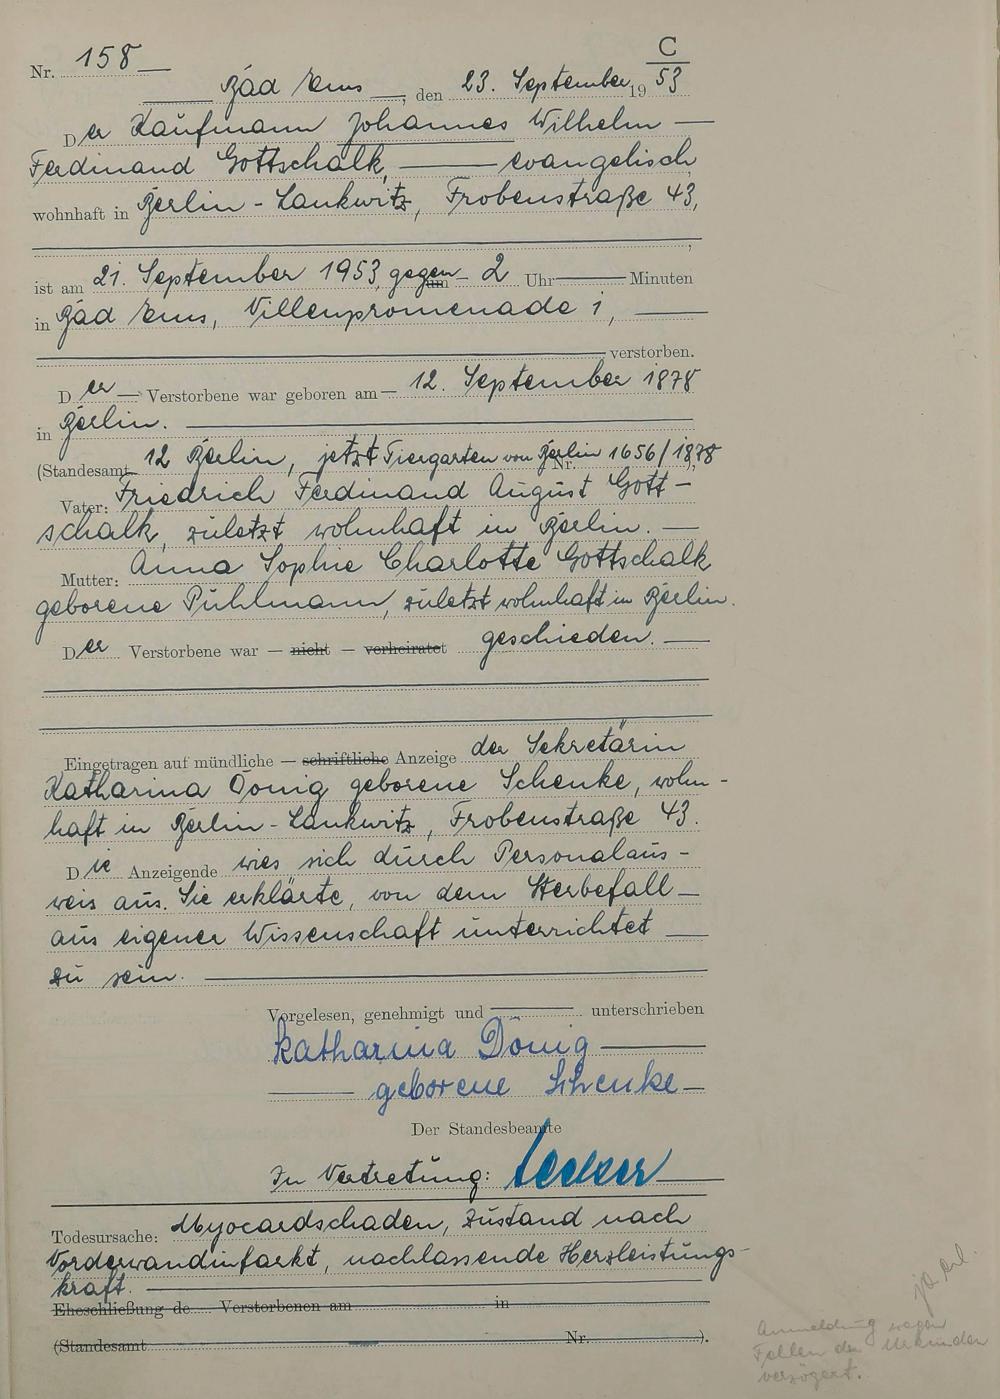 C
53
Nr. 158
Bad Ems, den 23. September 1953
Der Kaufmann Johannes Wilhelm
Ferdinand Gottschalk, evangelisch
wohnhaft in Berlin-Lankwitz, Frobenstraße 43,
ist am 21. September 1953, gegen am 2 Uhr Minuten
in Bad Ems, Villenpromenade 1,
verstorben.
Der Verstorbene war geboren am 12. September 1878
in Berlin.
(Standesamt 12 Berlin, jetzt Tiergarten von Berlin Nr. 1656/1878
Vater: Friedrich Ferdinand August Gott-
schalk, zuletzt wohnhaft in Berlin.
Mutter: Anna Sophie Charlotte Gottschalk
geborene Pühlmann, zuletzt wohnhaft in Berlin.
Der Verstorbene war — nicht — verheiratet geschieden.
Eingetragen auf mündliche — schriftliche Anzeige der Sekretärin
Katharina Dönig geborene Schenke, wohn-
haft in Berlin-Lankwitz, Frobenstraße 43.
Die Anzeigende wies sich durch Personalaus-
weis aus. Sie erklärte, von dem Sterbefall
aus eigener Wissenschaft unterrichtet
zu sein.
Vorgelesen, genehmigt und unterschrieben
Katharina Dönig
geborene Schenke
Der Standesbeamte
In Vertretung:
Todesursache: Myocardschaden, Zustand nach
Vorderwandinfarkt, nachlassende Herzleistungs-
kraft.
Eheschließung de Verstorbenen am in
(Standesamt Nr. ).
Anmeldung wegen
Fehlen der Urkunden
verzögert.